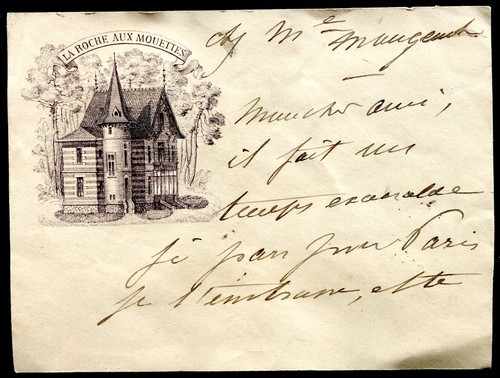 LA ROCHE AUX MOUETTES
chz Me Maugenest
Mon cher ami,
il fait un
temps exécrable
je pars pour Paris
je t'embrasse, et te